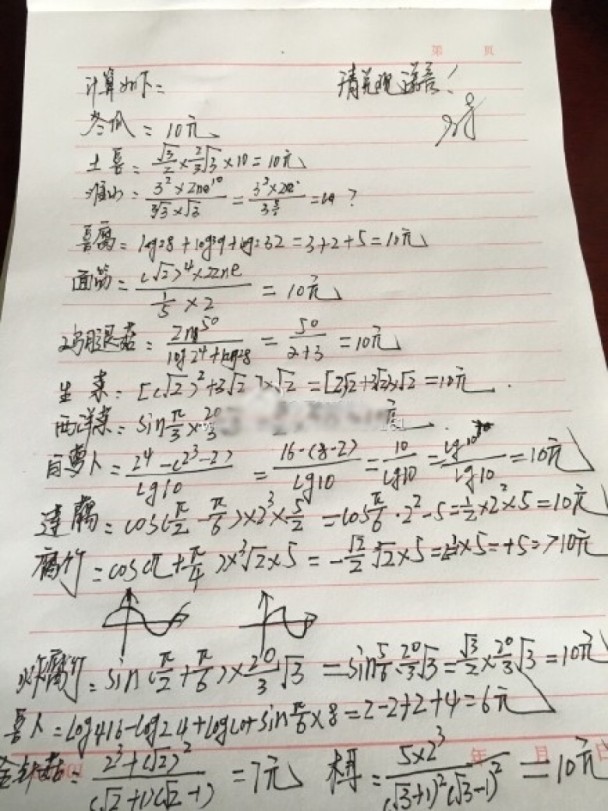 第 页
计算如下: 请兑现诺言!
冬瓜 = 10元
土豆 = √3/2 × 2/3 √3 × 10 = 10元
淮山: = 3² × 2ne¹⁰ / ∛3 × √3 = = ?
豆腐 = log₂8 + log₃9 + log₂32 = 3+2+5 = 10元
面筋 = (√2)⁴ × 2lne / 1/5 × 2 = 10元
= 2ne⁵⁰ / log₂4 + log₂8 = 50 / 2+3 = 10元
生菜: [(√2)² + 3√2] × √2 = [2√2 + 3√2] × √2 = 10元.
西洋菜 = sin π/3 × 20/3 元
白萝卜 = 2⁴ - (2³ - 2) / lg10 = 16 - (8-2) / lg10 = 10 / lg10 = lg10¹⁰ / lg10 = 10元
莲藕 = cos(π/2 - π/6) × 2³ × 5/2 = cos π/6 · 2² · 5 = 1/2 × 2² × 5 = 10元
腐竹 = cos(π + π/4) × ³√2 × 5 = -√2/2 ³√2 × 5 = × 5 = +5 = > 10元
炸腐竹 = sin(π/2 + π/6) × 20/3 √3 = sin 5/6 · 20/3 √3 = √3/2 × 20/3 √3 = 10元
= log₄16 - log₂4 + log10 + sin π/6 × 8 = 2-2+2+4 = 6元
金针菇: 2³ + (√2)² / (√2+1)(√2-1) = 7元 = 5×2³ / (√3+1)²(√3-1)² = 10元
年 月 日